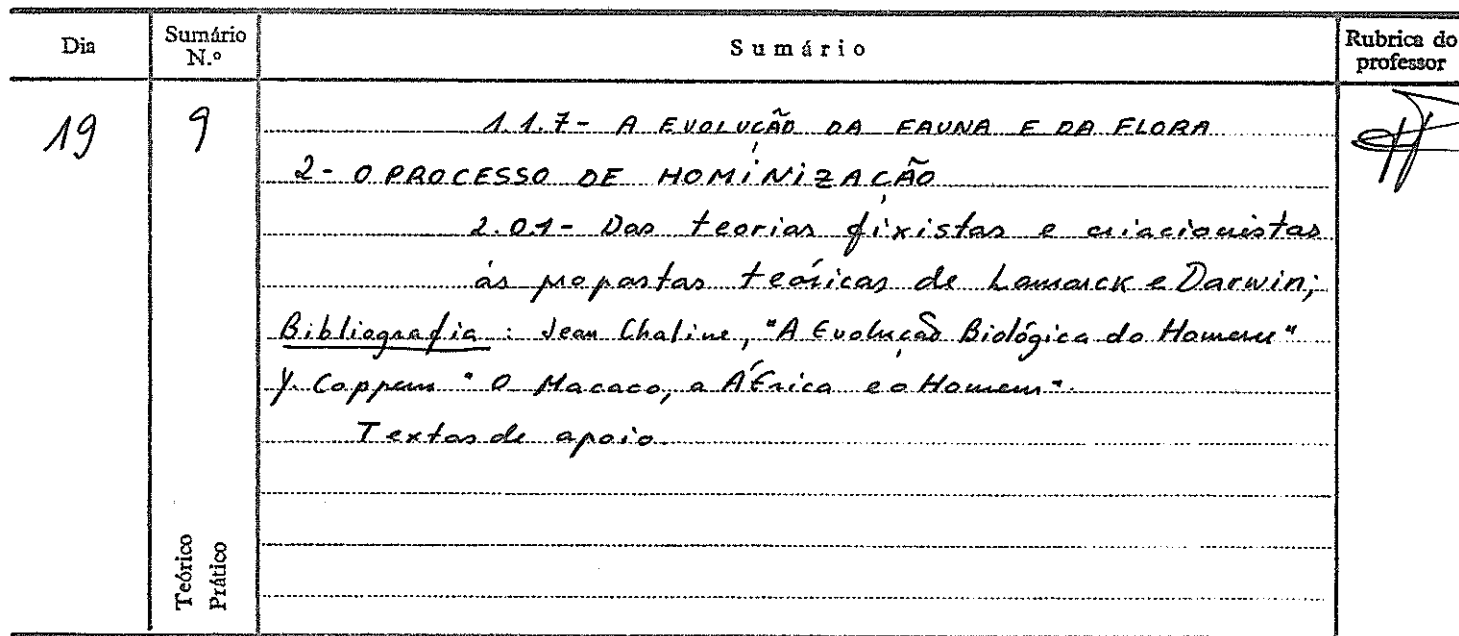 Dia
Sumário N.º
Sumário
Rubrica do professor
19
9
1.1.7- A EVOLUÇÃO DA FAUNA E DA FLORA
2- O PROCESSO DE HOMINIZAÇÃO
2.01- Das teorias fixistas e criacionistas
às propostas teóricas de Lamarck e Darwin;
Bibliografia: Jean Chaline, "A Evolução Biológica do Homem"
Y. Coppens "O Macaco, a África e o Homem".
Textos de apoio.
Teórico
Prático